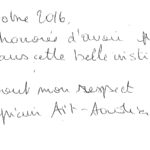 obre 2016,
honorés d'avoir
dans cette belle insti
tout mon respect
Aït-